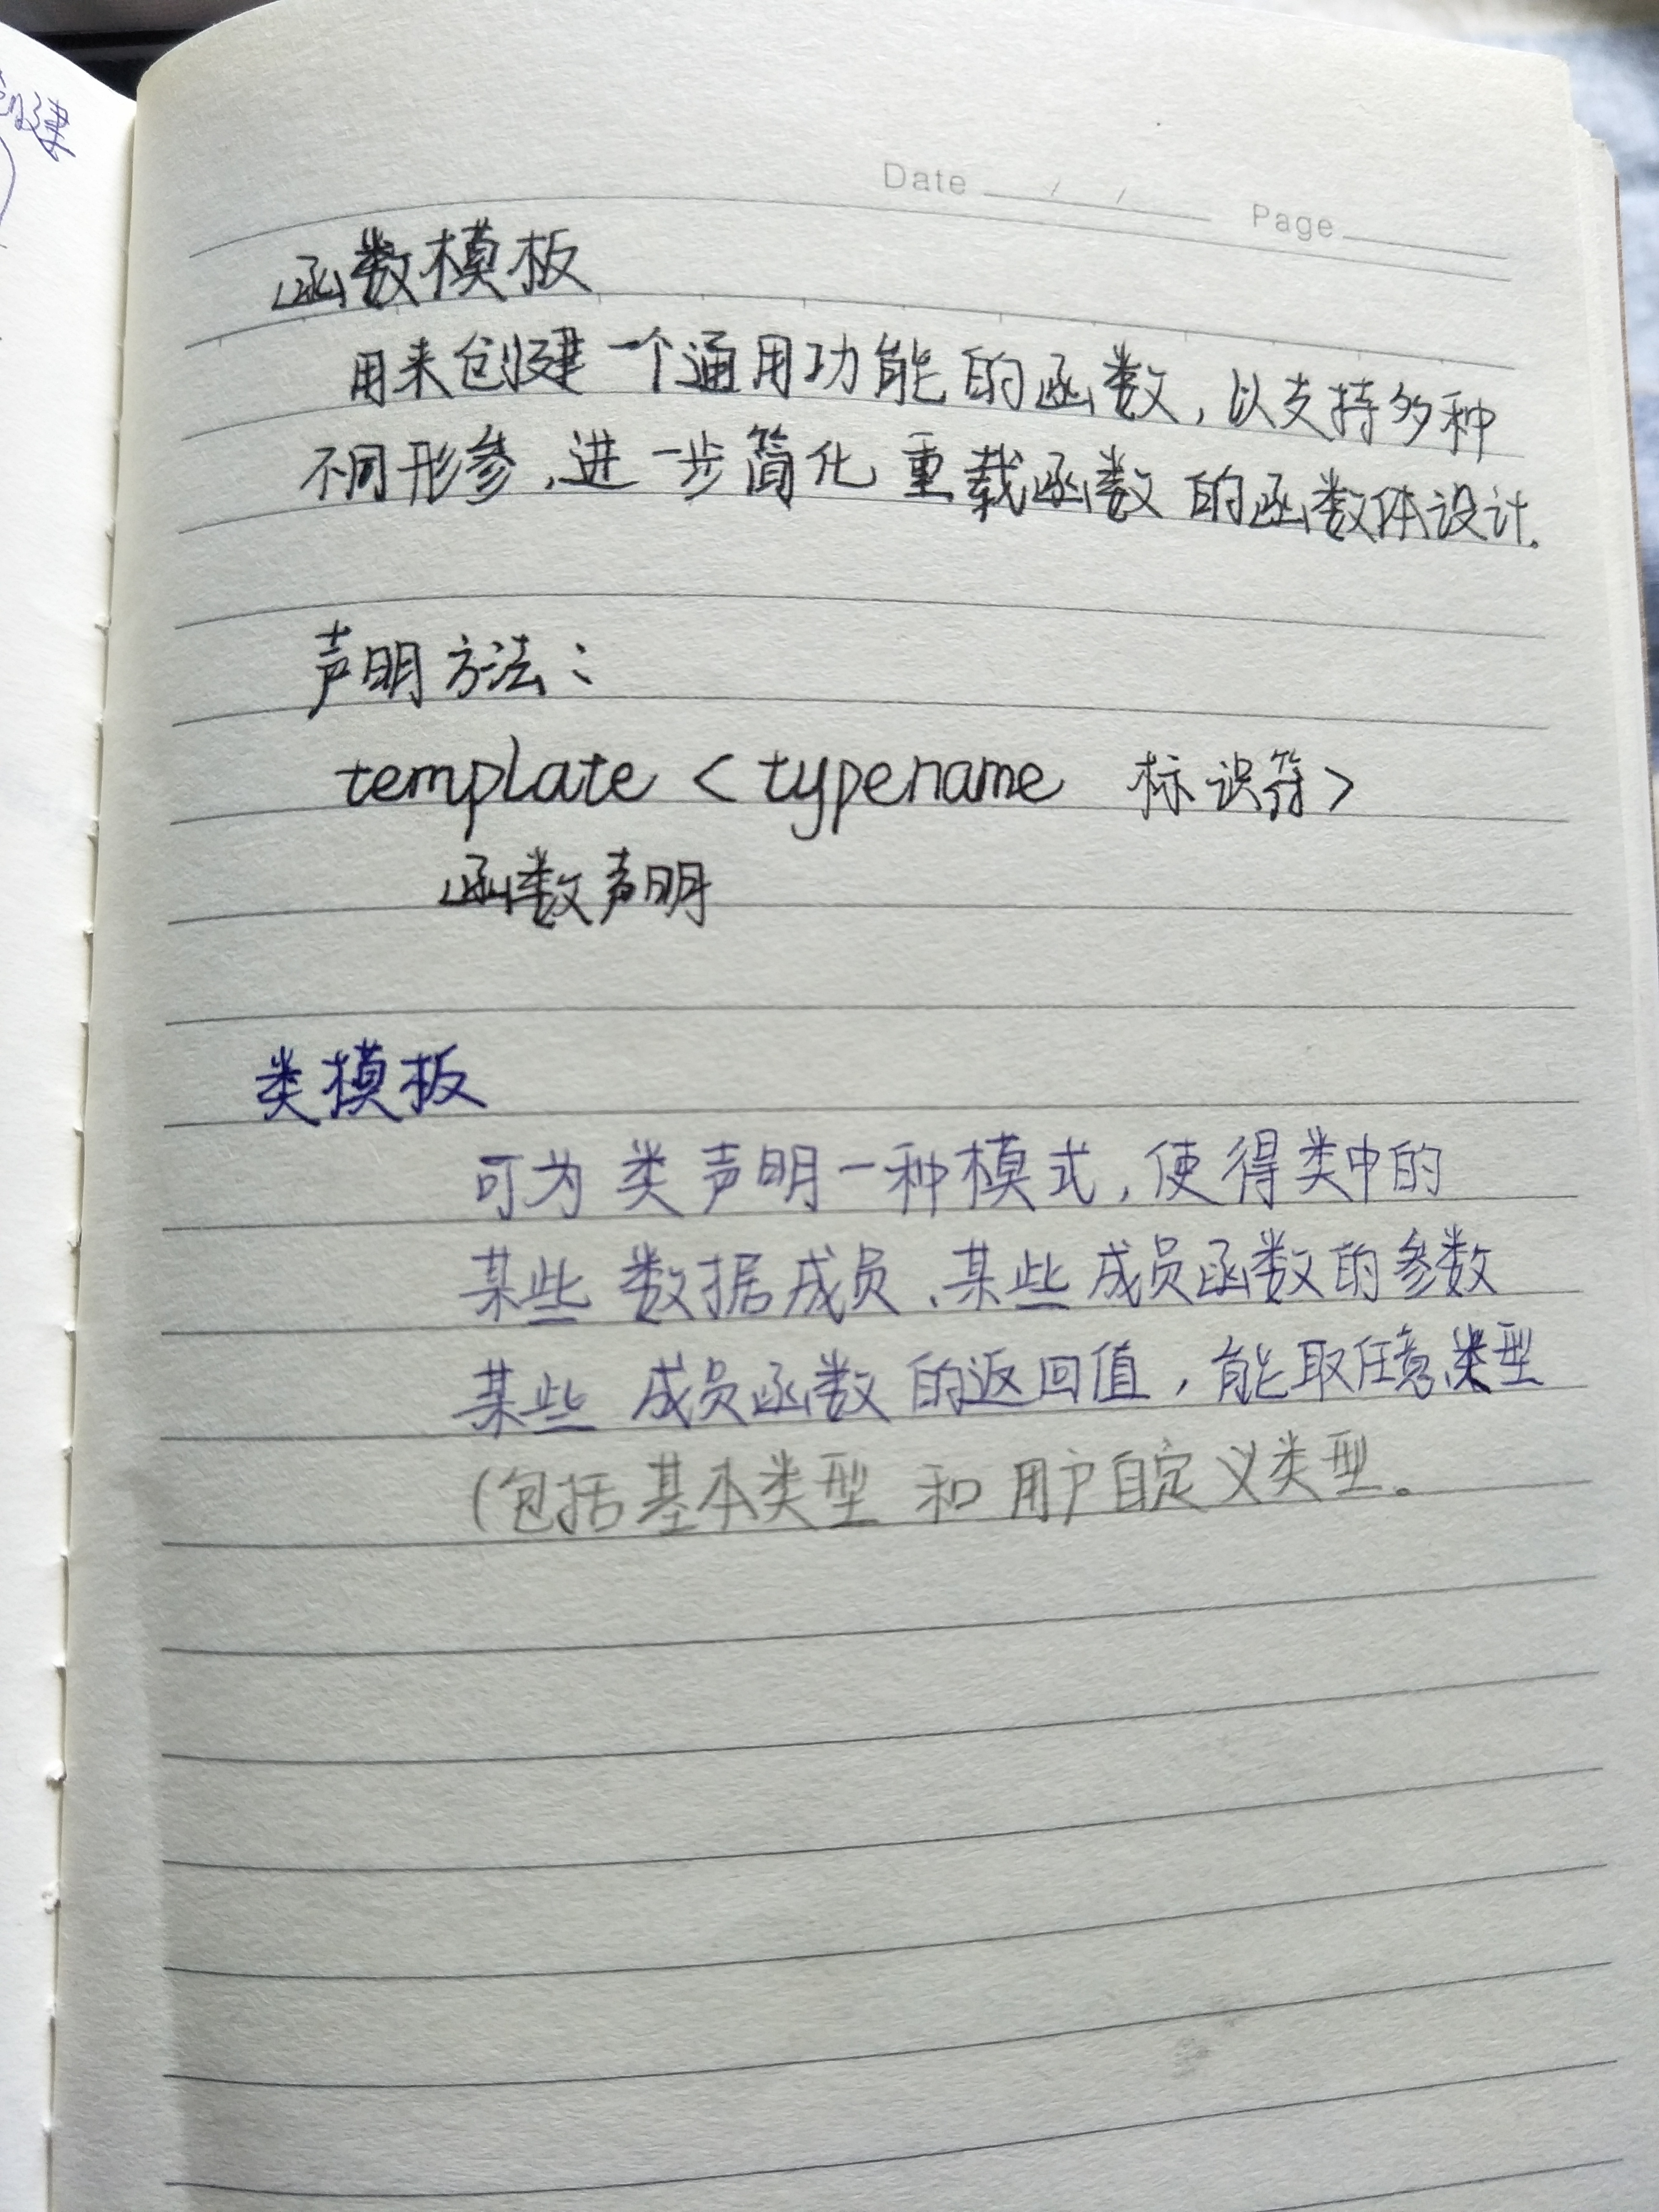 Date / / Page
函数模板
用来创建一个通用功能的函数，以支持多种
不同形参，进一步简化重载函数的函数体设计。
声明方法：
template <typename 标识符>
函数声明
类模板
可为类声明一种模式，使得类中的
某些数据成员、某些成员函数的参数
某些成员函数的返回值，能取任意类型
(包括基本类型和用户自定义类型。